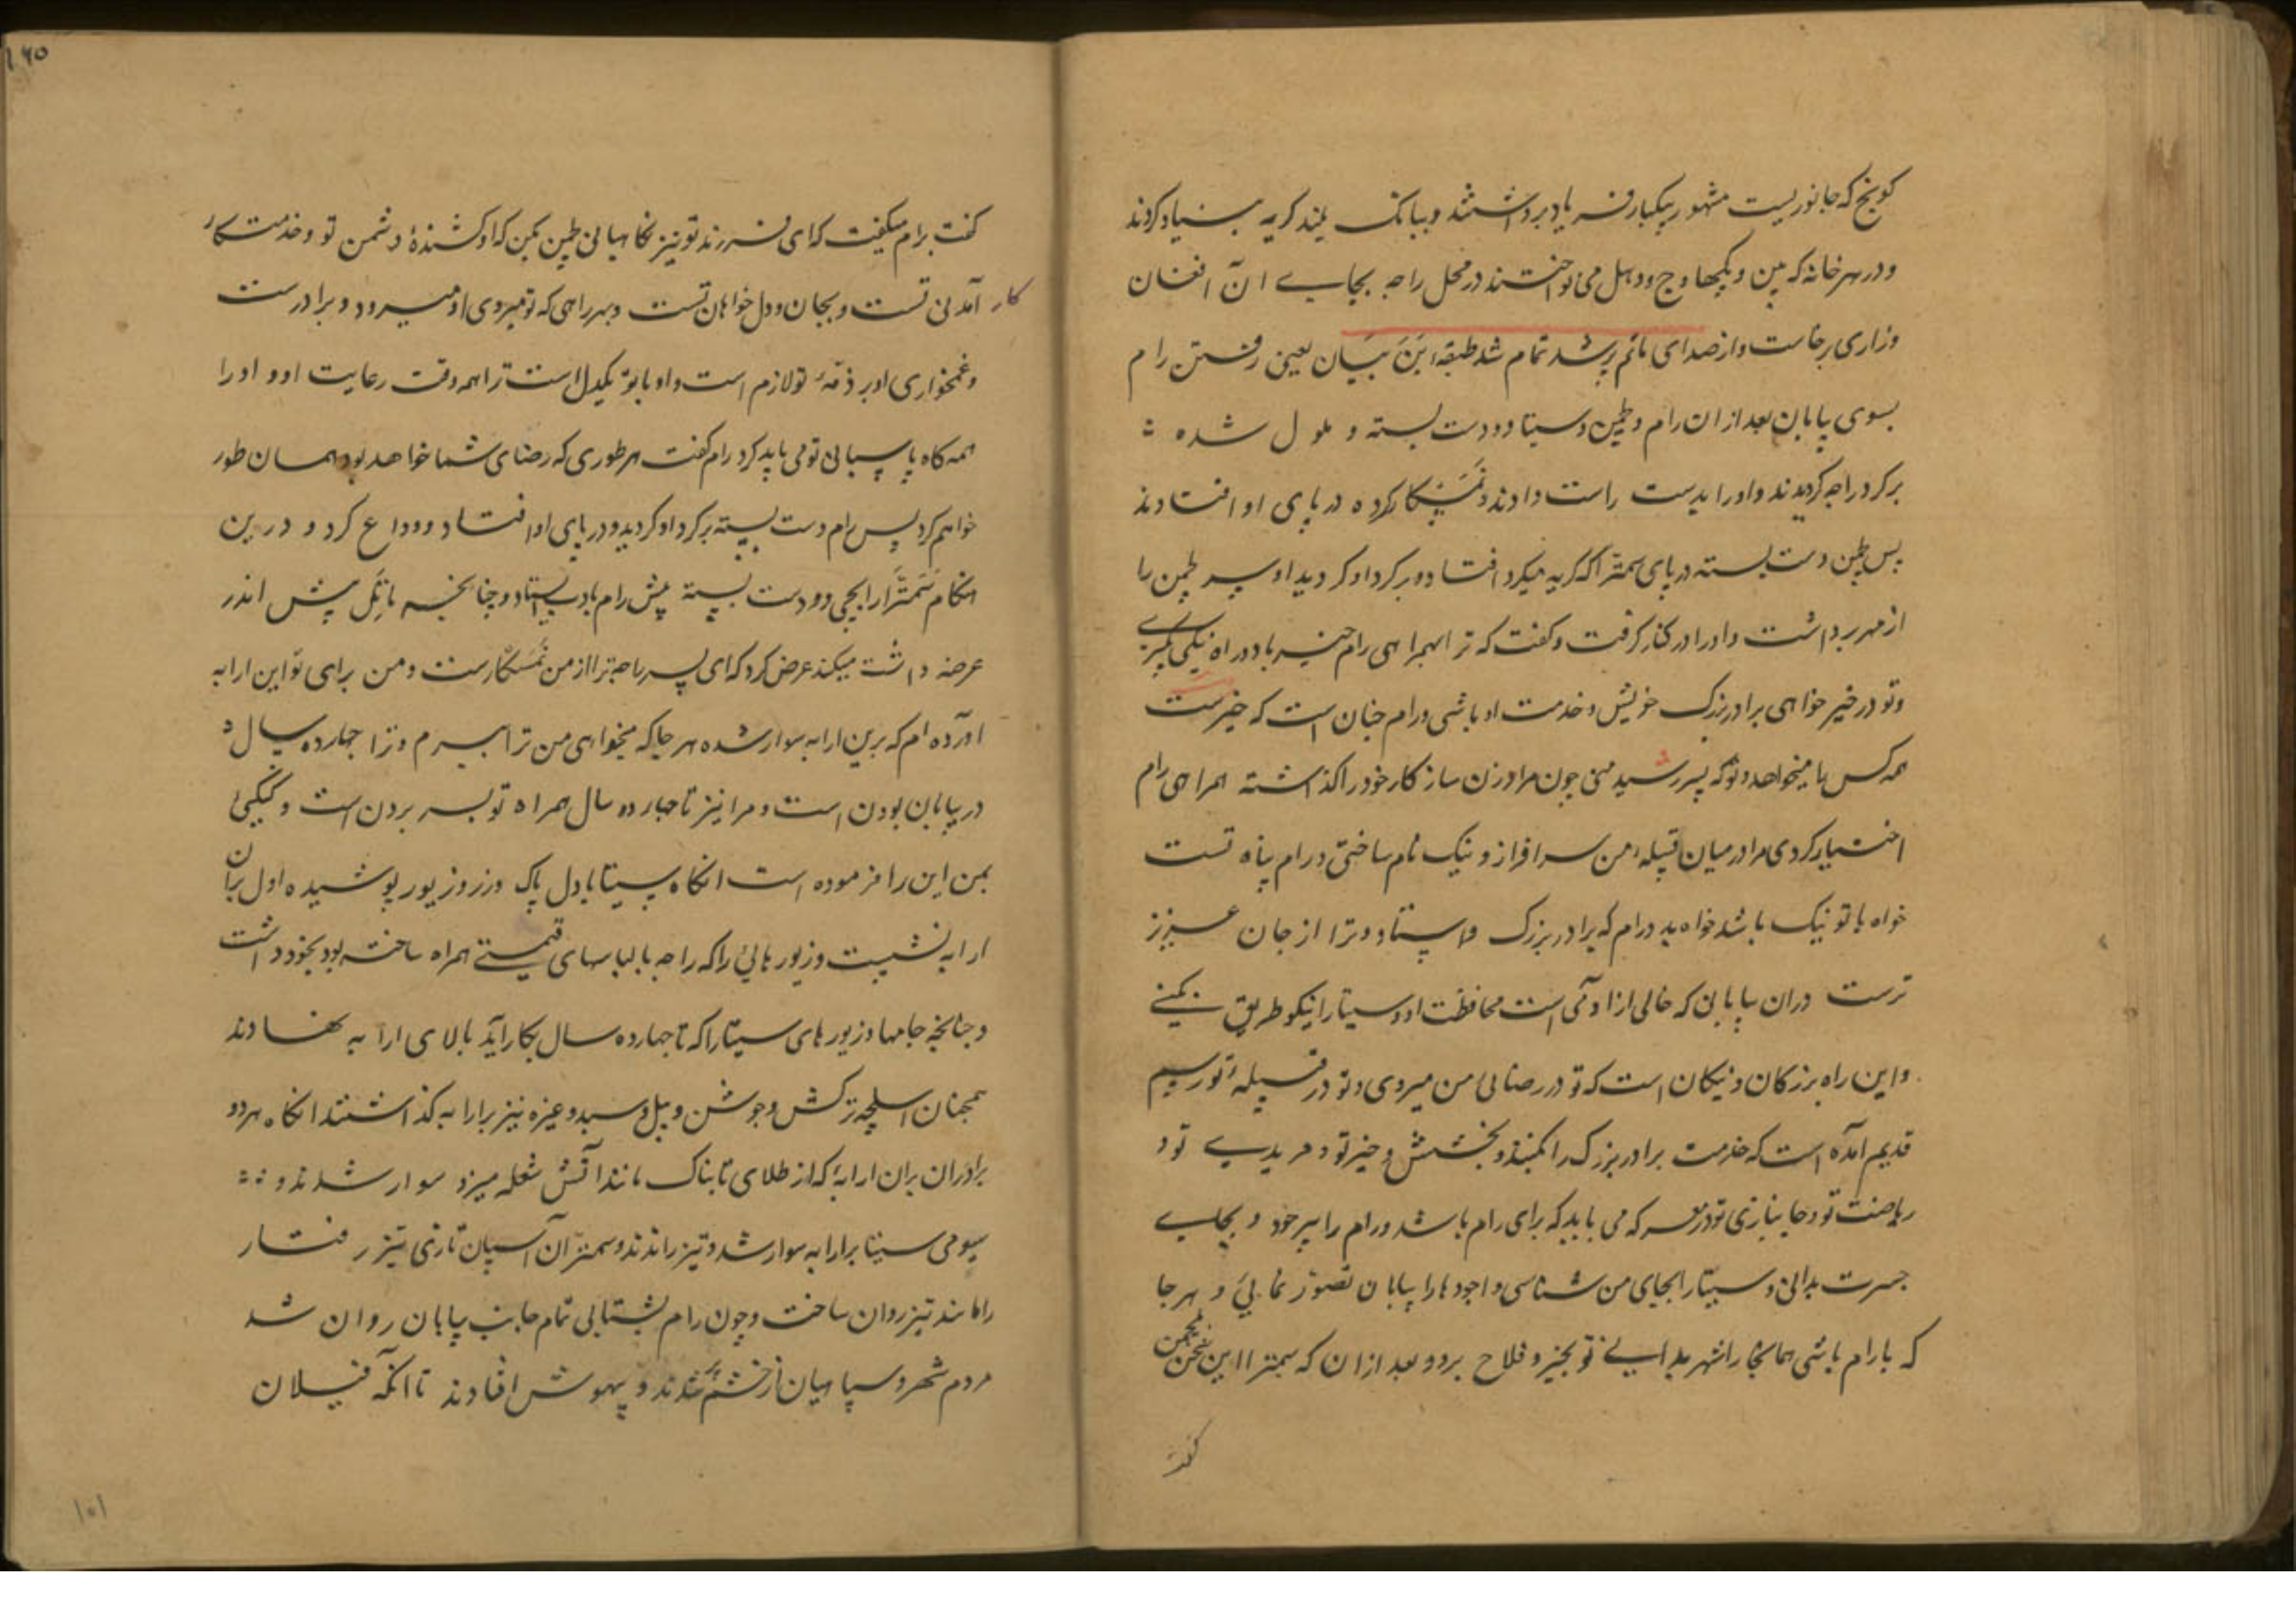 کونج که جانوریست مشهور بیکبار فریاد برداشتند و ببانک بلند کریه بنیاد کردند
و در هر خانه که بین و پکهاوج و دهل می نواختند در محل راجه بجایے آن افغان
و زاری برخاست و از صدای ماتم پر شد تمام شد طبقهٔ بَنَ بَیَان یعنی رفتن رام
بسوی بیابان بعد ازان رام و لچمن و سیتا دو دست بسته و ملول شده
برکرد راجه کردیدند و او را بدست راست دادند و نَمَسْکار کرده در پای او افتادند
پس لچمن دست بسته در پای سمترا که کریه میکرد افتاد و برکرد او کردید او سر لچمن را
از مهر برداشت و او را در کنار کرفت و کفت که ترا همراهی رام خیر باد و راه نیکی بکیرے
و تو در خیر خواهی برادر بزرک خویش و خدمت او باشی و رام چنان است که خیرت
همه کس را میخواهد و تو که پسر رشید منی چون مرا و زن ساز کار خود را کذاشته همراهی رام
اختیار کردی مرا در میان قبیلهٔ من سرافراز و نیک نام ساختی و رام پناه تست
خواه با تو نیک باشد خواه بد و رام که برادر بزرک و استاد و ترا از جان عزیز
ترست دران بیابان که خالی از آدمی است محافظت او و سیتا را نیکو طریق بکنے
و این راه بزرکان و نیکان است که تو در رضای من میروی و تو در قبیلهٔ تو رسم
قدیم آمده است که خدمت برادر بزرک را کنند و بخشش و خیر تو و مریدیے تو و
ریاضت تو و جانبازی تو در معرکه می باید که برای رام باشد و رام را پیر خود و بجایے
جسرت بدانی و سیتا را بجای من شناسی و اجودها را بیابان تصوّر نمایی و هر جا
که با رام باشی همانجا را شهر بدانے تو بخیر و فلاح برو و بعد ازان که سمترا این سخن بلچمن
کفت
۱۶۵
کفت برام میکفت که ای فرزند تو نیز نکاهبانی لچمن بکن که او کشندهٔ دشمن تو و خدمتکار
کار آمدنی تست و بجان و دل خواهان تست و بهر راهی که تو میروی او میرود و برادرت
و غمخواری او بر ذمّهٔ تو لازم است و او با تو یکدل است ترا همه وقت رعایت او و او را
همه کاه پاسبانی تو می باید کرد رام کفت هر طوری که رضای شما خواهد بود همان طور
خواهم کرد پس رام دست بسته برکرد او کردید و در پای او افتاد و وداع کرد و درین
هنکام سَمَنْتَرَ ارابچی دو دست بسته پیش رام بادب بایستاد و چنانچه ماتَل پیش اندر
عرضه داشت میکند عرض کرد که ای پسر راجه ترا از من نَمَسْکارست و من برای تو این ارابه
آورده ام که برین ارابه سوار شده هر جا که میخواهی من ترا ببرم و ترا چهارده سال
در بیابان بودن است و مرا نیز تا چهارده سال همراه تو بسر بردن است و کیکیٔ
بمن این را فرموده است انکاه سیتا با دل پاک و زر و زیور پوشیده اول بران
ارابه نشست و زیورهائی را که راجه با لباسهای قیمتے همراه ساخته بود بخود داشت
و چنانچه جامها و زیورهای سیتا را که تا چهارده سال بکار آید بالای ارابه نهادند
همچنان اسلحه ترکش و جوشن و بیل و سبد و غیره نیز بر ارابه کذاشتند انکاه هر دو
برادران بران ارابهٔ که از طلای تابناک مانند آتش شعله میزد سوار شدند و
سومی سیتا بر ارابه سوار شد و تیز راندند و سمنتر آن اسپان تازی تیز رفتار
را مانند تیز روان ساخت و چون رام بشتابی تمام جانب بیابان روان شد
مردم شهر و سپاهیان از خشم شدند و بیهوش افتادند تا انکه فیلان
۱۰۱